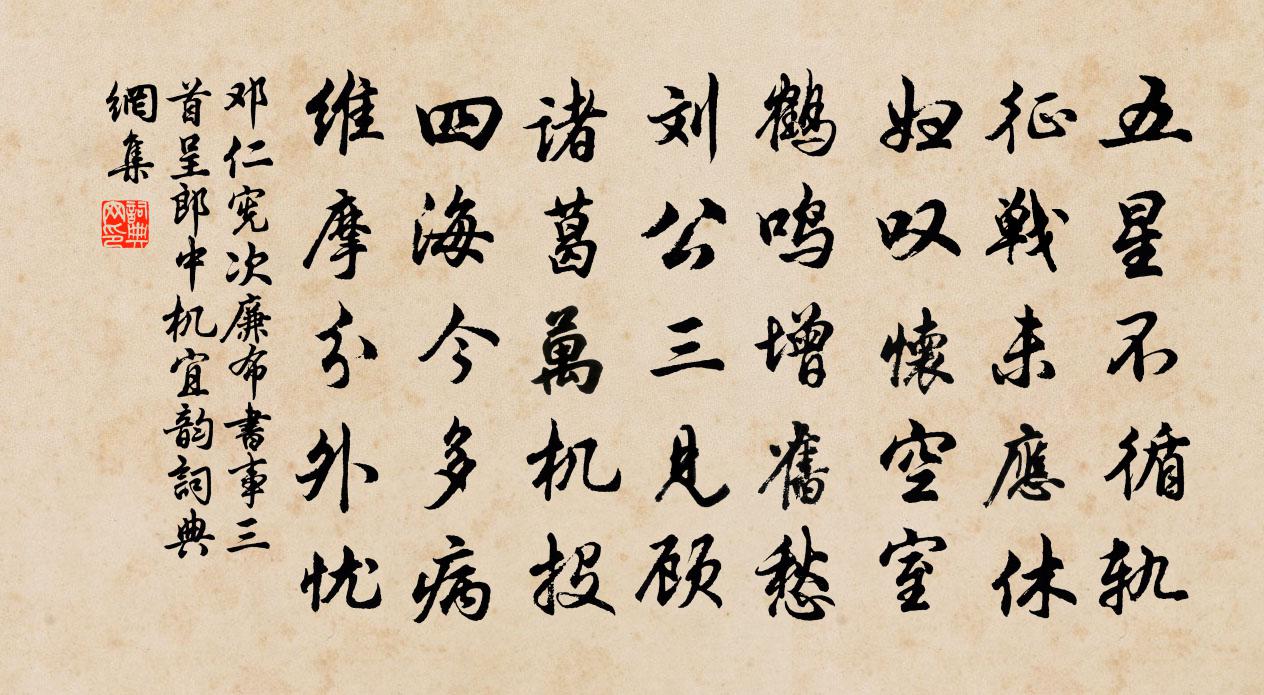 五星不循轨
征戦未應休
妇叹懐空室
鹤鸣增舊愁
刘公三见顾
诸葛萬机投
四海今多病
维摩分外忧
邓仁宪次廉布書事三
首呈郎中机宜韵詞典
網集
詞典
网印